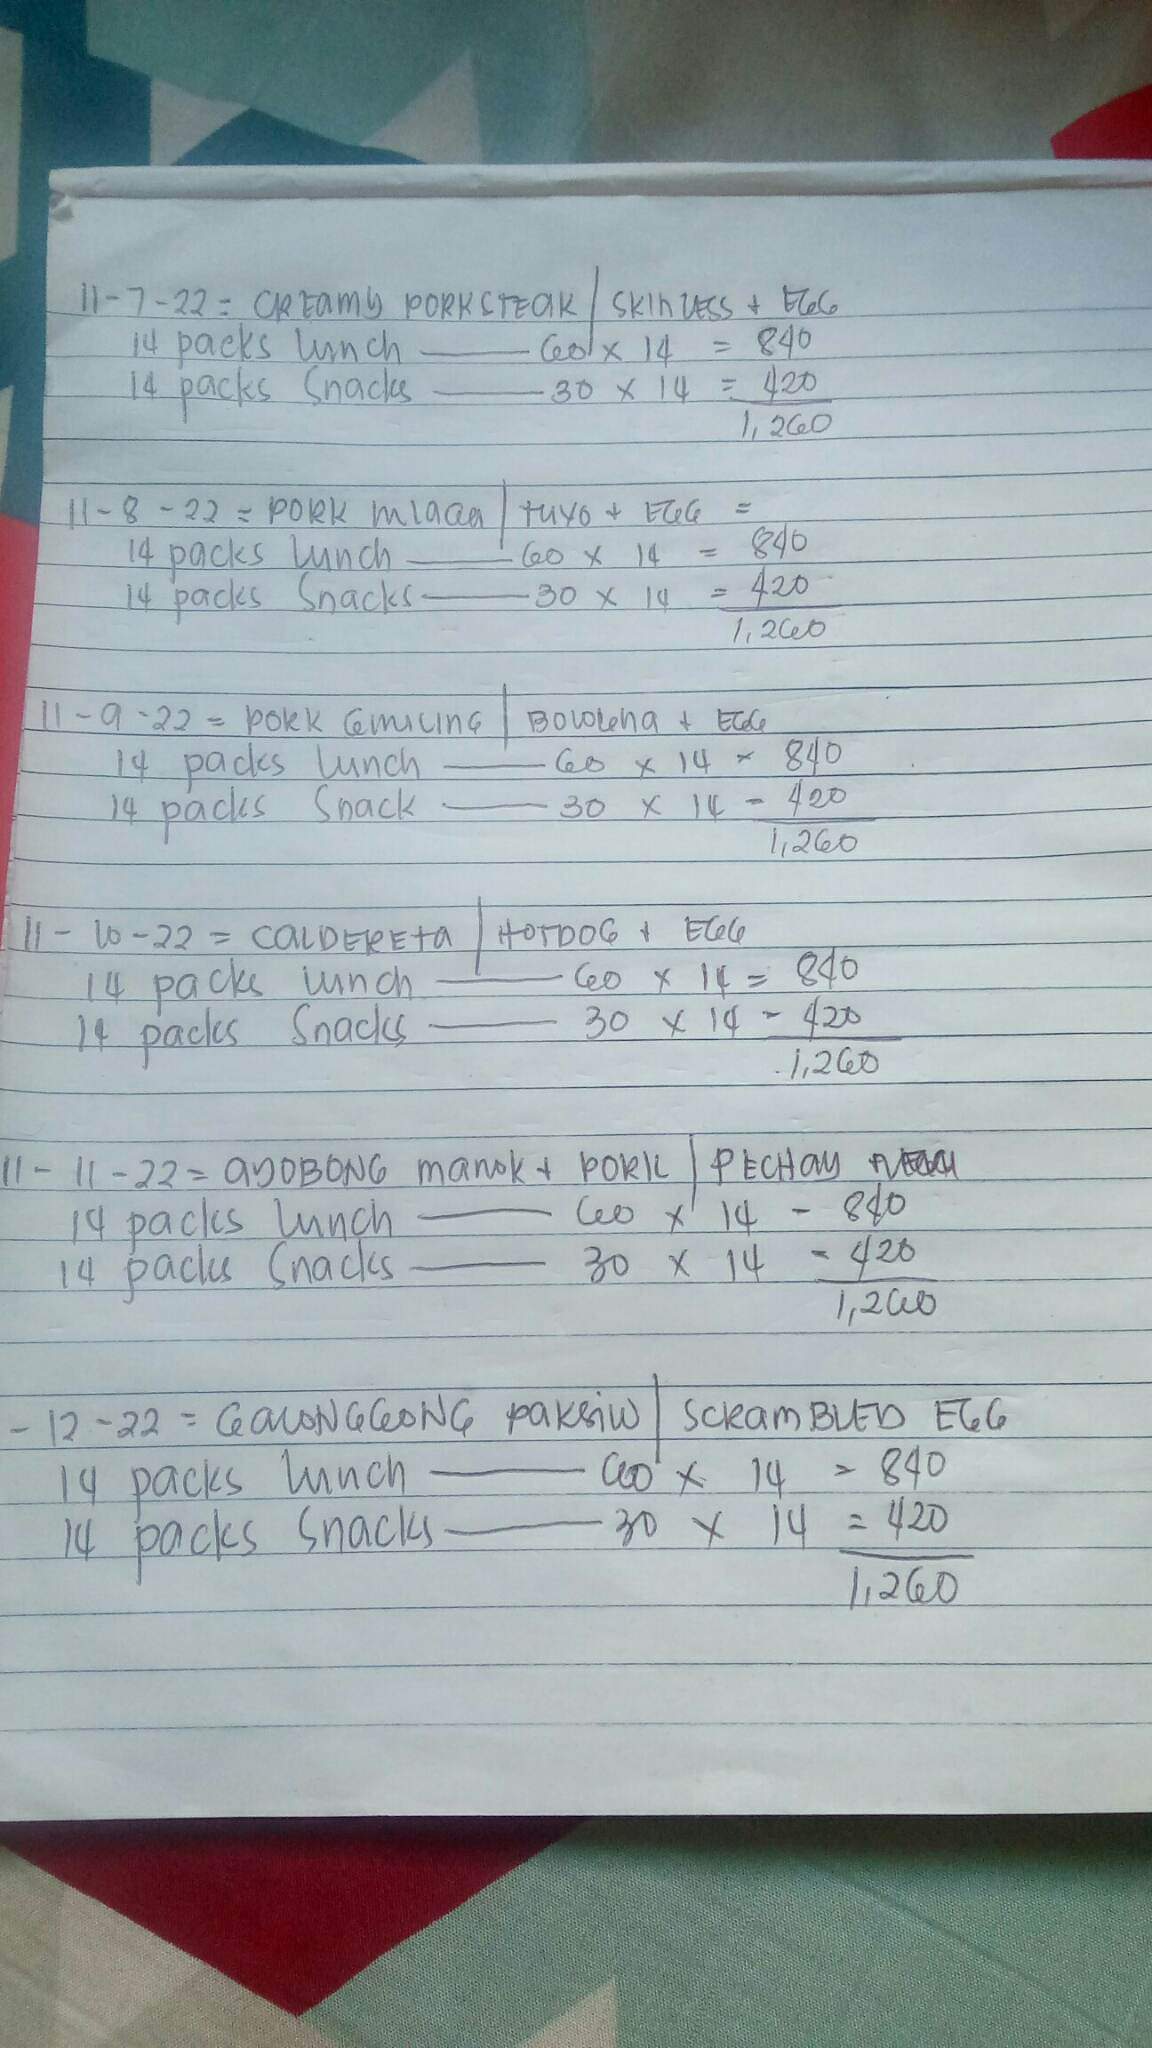 11-7-22 = CREAMY PORKSTEAK / SKINLESS + EGG
14 packs lunch — 60 x 14 = 840
14 packs Snacks — 30 x 14 = 420
1,260
11-8-22 = PORK NILAGA | TUYO + EGG =
14 packs lunch — 60 x 14 = 840
14 packs Snacks — 30 x 14 = 420
1,260
11-9-22 = PORK GINILING | BOLOGNA + EGG
14 packs lunch — 60 x 14 - 840
14 packs Snack — 30 x 14 - 420
1,260
11-10-22 = CALDERETA | HOTDOG + EGG
14 packs lunch — 60 x 14 = 840
14 packs Snacks — 30 x 14 - 420
1,260
11-11-22 = ADOBONG manok + PORK | PECHAY
14 packs lunch — 60 x 14 - 840
14 packs Snacks — 30 x 14 - 420
1,260
-12-22 = GALONGGONG PAKSIW | SCRAMBLED EGG
14 packs lunch — 60 x 14 = 840
14 packs Snacks — 30 x 14 = 420
1,260